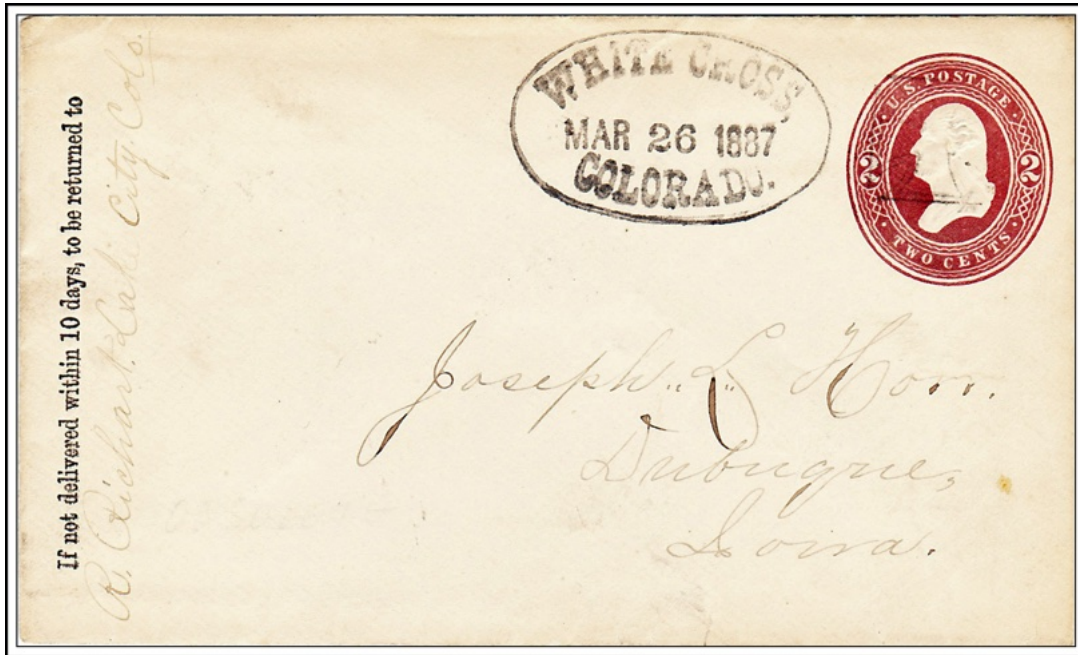 If not delivered within 10 days, to be returned to
R. Richart. Lake City. Colo.
WHITE CROSS
MAR 26 1887
COLORADO.
U.S. POSTAGE
2 2
TWO CENTS
Joseph „L„ Horr.
Dubuque,
Iowa.